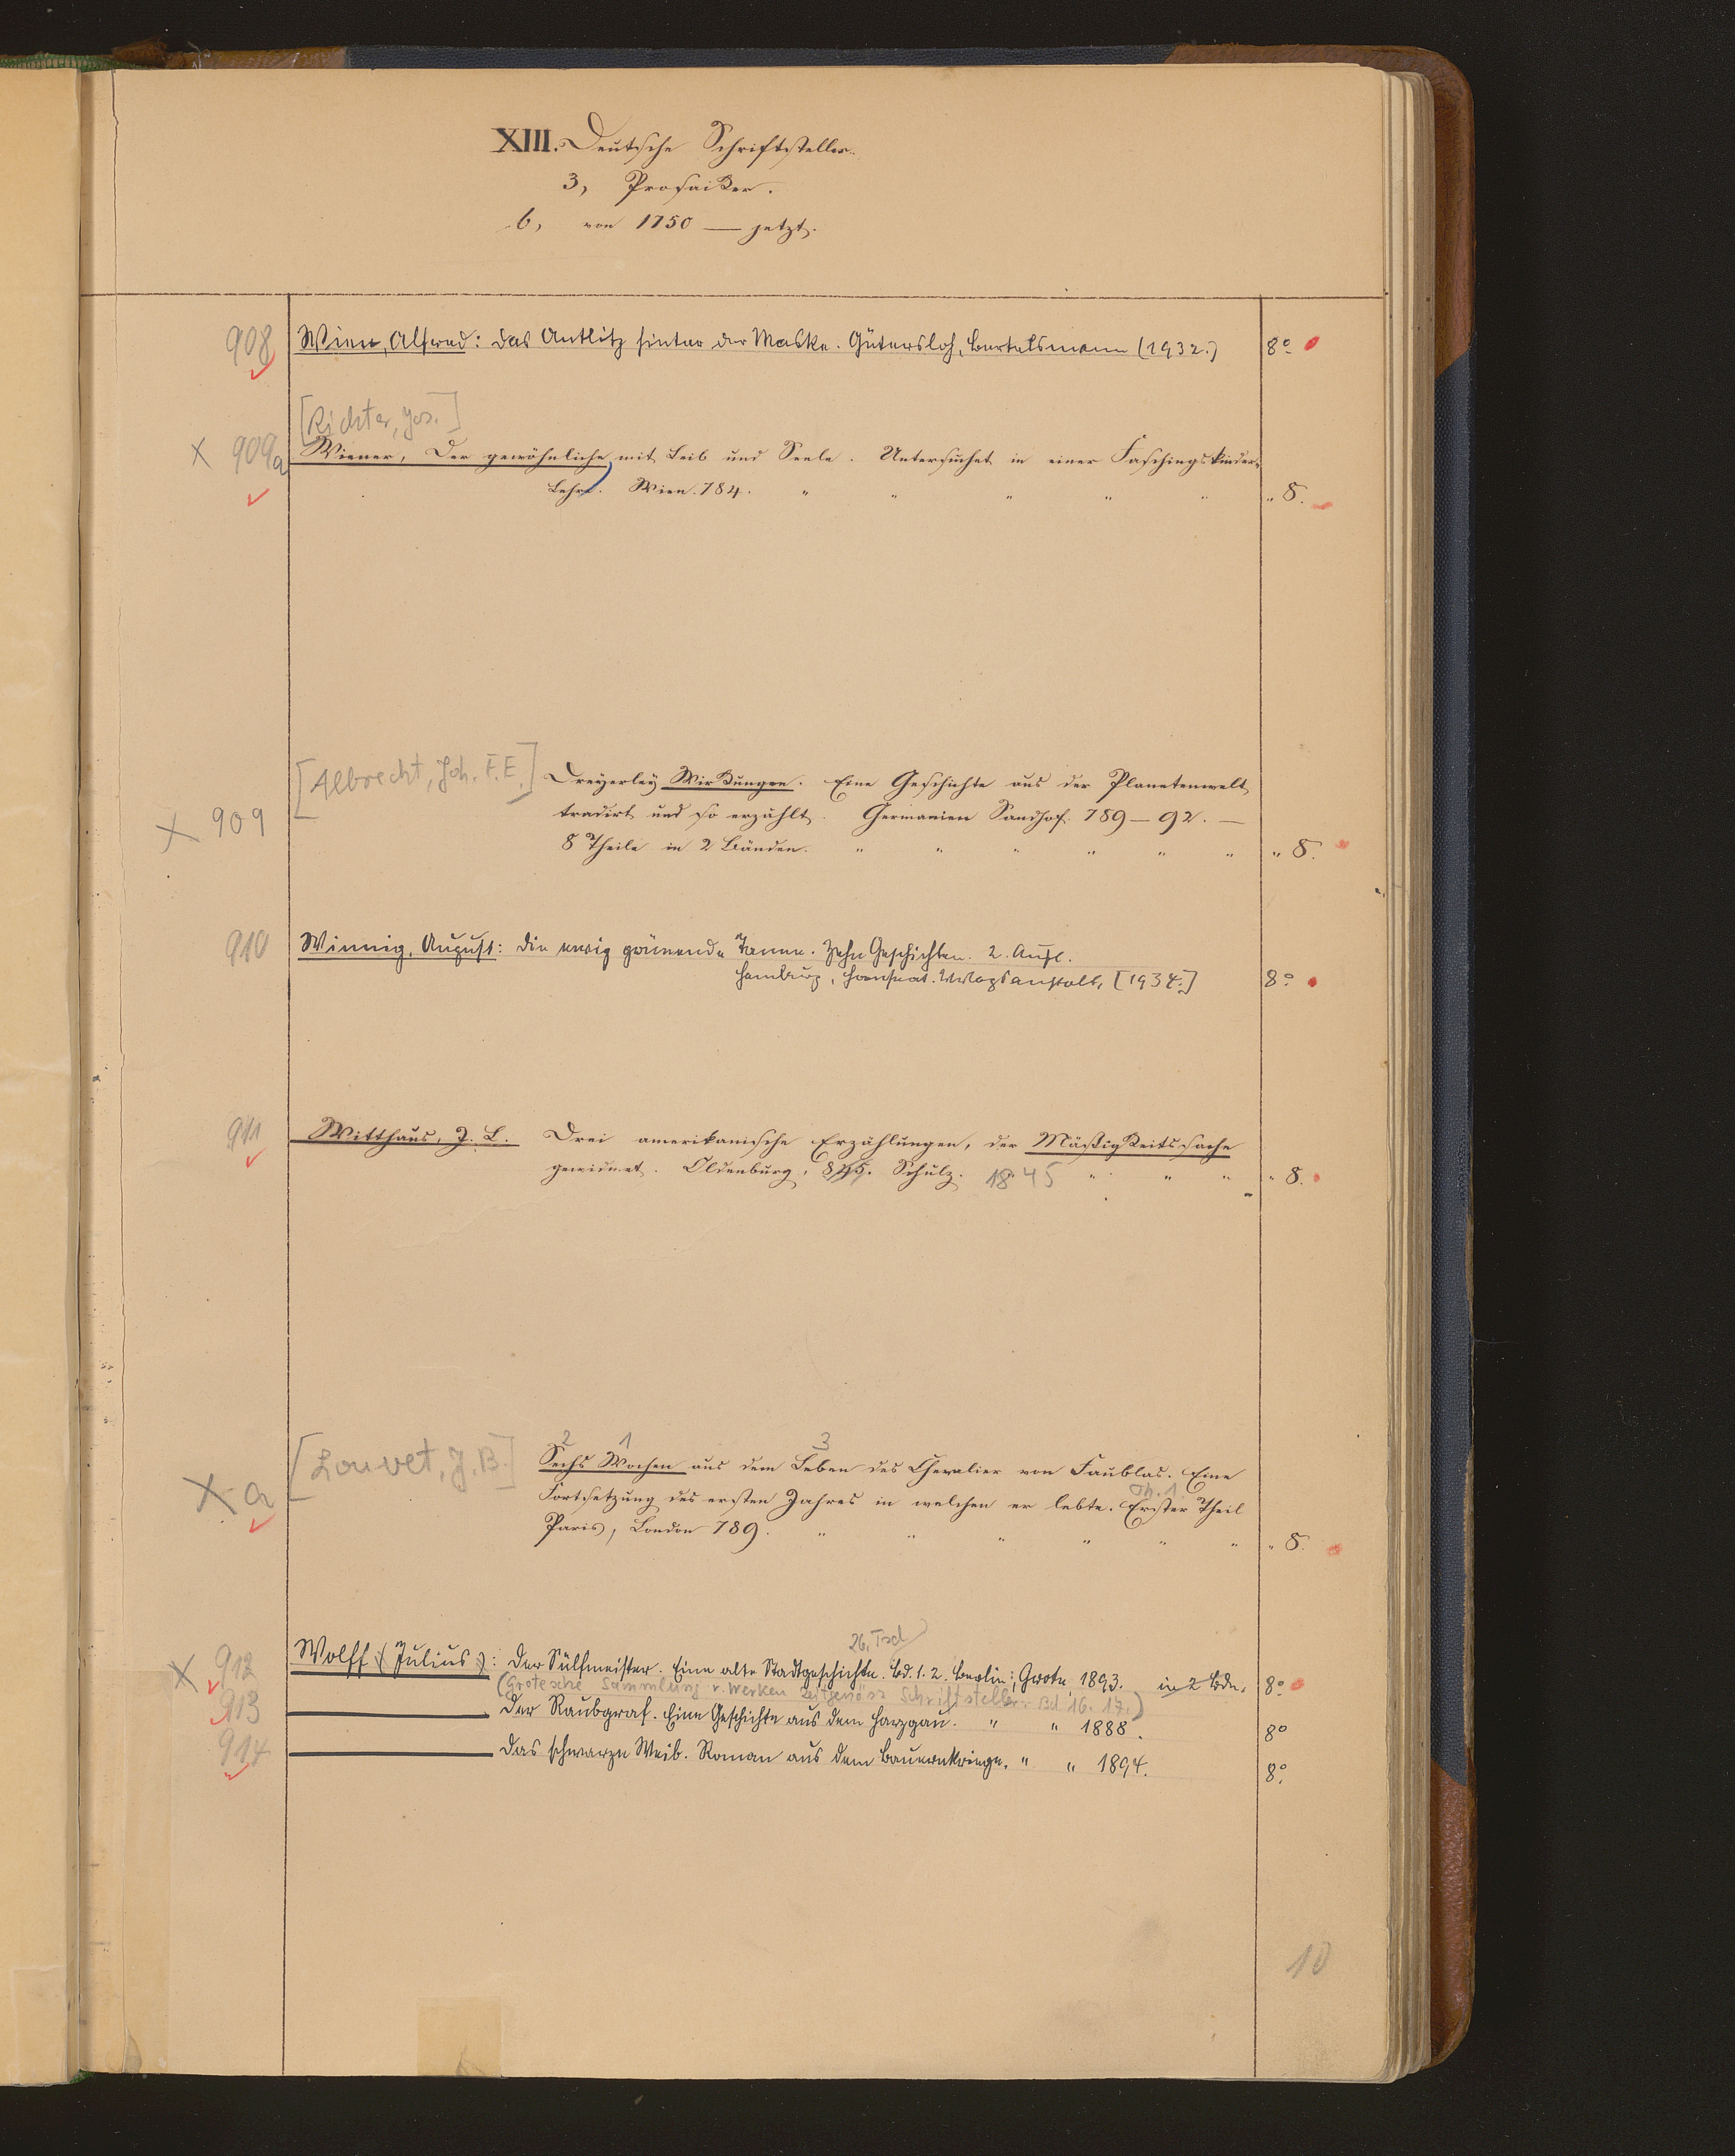 XIII. Deutsche Schriftsteller.
3, Prosaiker.
b, von 1750 — jetzt.
908 Wien, Alfred: Das Antlitz hinter der Maske. Gütersloh, Bertelsmann (1932.) 8°
[Richter, Jos.]
X 909a Wiener, Der gewöhnliche, mit Leib und Seele. Untersuchet in einer Faschingskinder-
Lehre. Wien. 784. " " " " " " 8.
[Albrecht, Joh. F. E.] Dreyerley Wirkungen. Eine Geschichte aus der Planetenwelt
X 909 tradirt und so erzählt. Germanien Sandhof. 789—92. —
8 Theile in 2 Bänden. " " " " " " " 8.
910 Winnig, August: Die ewig grünende Tanne. Zehn Geschichten. 2. Aufl.
Hamburg, Hanseat. Verlagsanstalt, [1934.] 8°
911 Witthaus, J. L. Drei amerikanische Erzählungen, der Mäßigkeitssache
gewidmet. Oldenburg, 845. Schulz. 1845 " " " " 8.
2 1 3
[Louvet, J. B.] Sechs Wochen aus dem Leben des Chevalier von Faublas. Eine
Th. 1.
X a Fortsetzung des ersten Jahres in welchen er lebte. Erster Theil
Paris, London 789. " " " " " " " 8.
26. Tsd
X 912 Wolff (Julius): Der Sülfmeister. Eine alte Stadtgeschichte. Bd. 1. 2. Berlin; Grote, 1893. in 2 Bdn. 8°
(Grotesche Sammlung v. Werken zeitgenöss Schriftsteller. Bd 16. 17.)
913 ——— Der Raubgraf. Eine Geschichte aus dem Harzgau. " " 1888. 8°
914 ——— Das schwarze Weib. Roman aus dem Bauernkriege. " " 1894. 8°
10